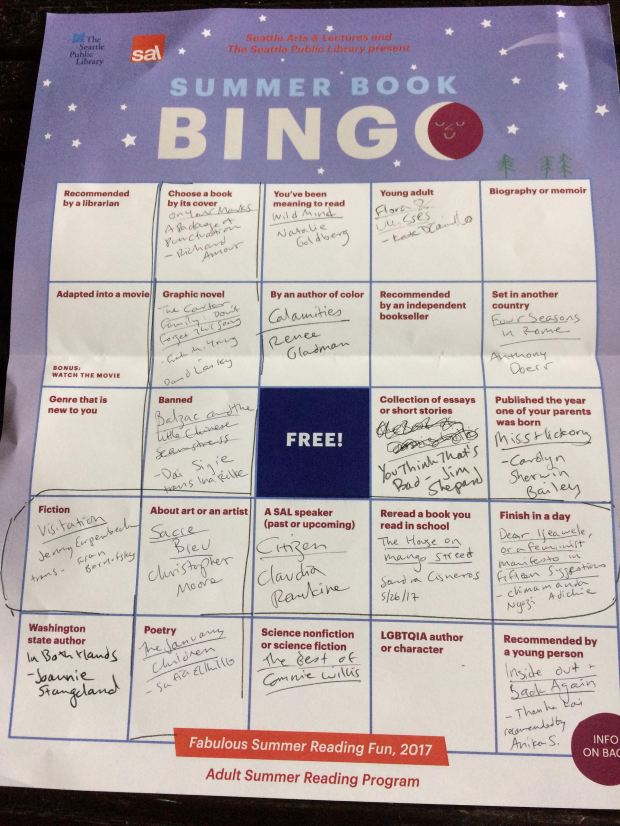 The
Seattle
Public
Library
sal
Seattle Arts & Lectures and
The Seattle Public Library present
SUMMER BOOK
BINGO
Recommended
by a librarian
Choose a book
by its cover
On Your Marks
A Package of
Punctuation
- Richard
Armour
You've been
meaning to read
Wild Mind
Natalie
Goldberg
Young adult
Flora &
Ulysses
- Kate DiCamillo
Biography or memoir
Adapted into a movie
BONUS:
WATCH THE MOVIE
Graphic novel
The Carter
Family: Don't
Forget This Song
David Lasky
By an author of color
Calamities
Renee
Gladman
Recommended
by an independent
bookseller
Set in another
country
Four Seasons
in Rome
Anthony
Doerr
Genre that is
new to you
Banned
Balzac and the
Little Chinese
Seamstress
- Dai Sijie
trans Ina Rilke
FREE!
Collection of essays
or short stories
You Think That's
Bad - Jim
Shepard
Published the year
one of your parents
was born
Miss Hickory
- Carolyn
Sherwin
Bailey
Fiction
Visitation
Jenny Erpenbeck
trans - Susan
Bernofsky
About art or an artist
Sacre
Bleu
Christopher
Moore
A SAL speaker
(past or upcoming)
Citizen
Claudia
Rankine
Reread a book you
read in school
The House on
mango street
Sandra Cisneros
5/26/17
Finish in a day
Dear Ijeawele,
or a feminist
manifesto in
fifteen suggestions
- chimamanda
Ngozi Adichie
Washington
state author
In Both Hands
- Joannie
Stangeland
Poetry
The January
Children
- Safia Elhillo
Science nonfiction
or science fiction
The Best of
Connie Willis
LGBTQIA author
or character
Recommended by
a young person
Inside out +
Back Again
- Thanhha Lai
recommended by
Anika S.
Fabulous Summer Reading Fun, 2017
Adult Summer Reading Program
INFO
ON BAC